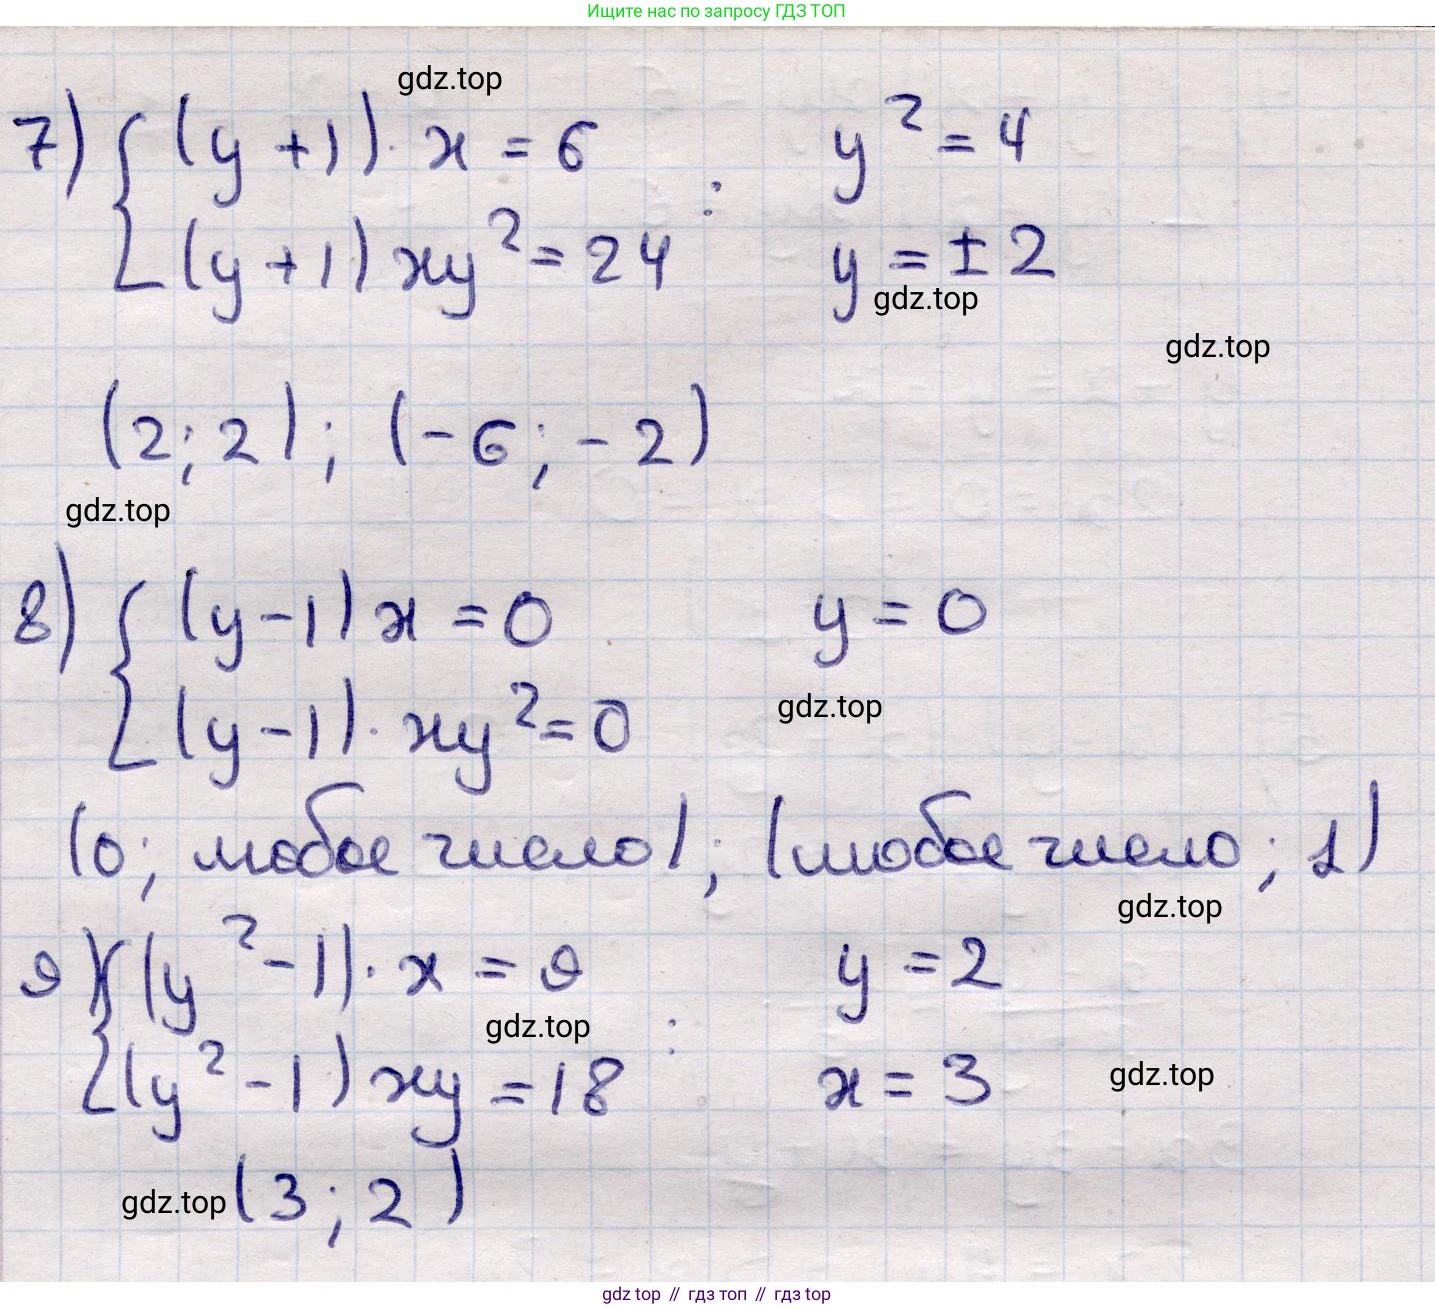 Ищите нас по запросу ГДЗ ТОП
gdz.top
7) { (y + 1) · x = 6
(y + 1) xy² = 24 :
y² = 4
y = ± 2
gdz.top
gdz.top
(2; 2); (-6; -2)
gdz.top
8) { (y - 1) x = 0
(y - 1) · xy² = 0
y = 0
gdz.top
(0; любое число); (любое число; 1)
gdz.top
9) { (y² - 1) · x = 9
gdz.top
(y² - 1) xy = 18 :
y = 2
x = 3
gdz.top
gdz.top (3; 2)
gdz top // гдз топ // гдз top